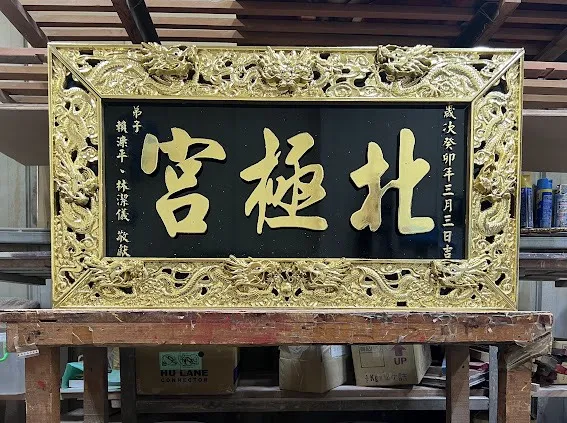 北極宮
歲次癸卯年三月三日吉
弟子
賴濼平、林潔儀 敬獻
HU LANE
CONNECTOR
UP